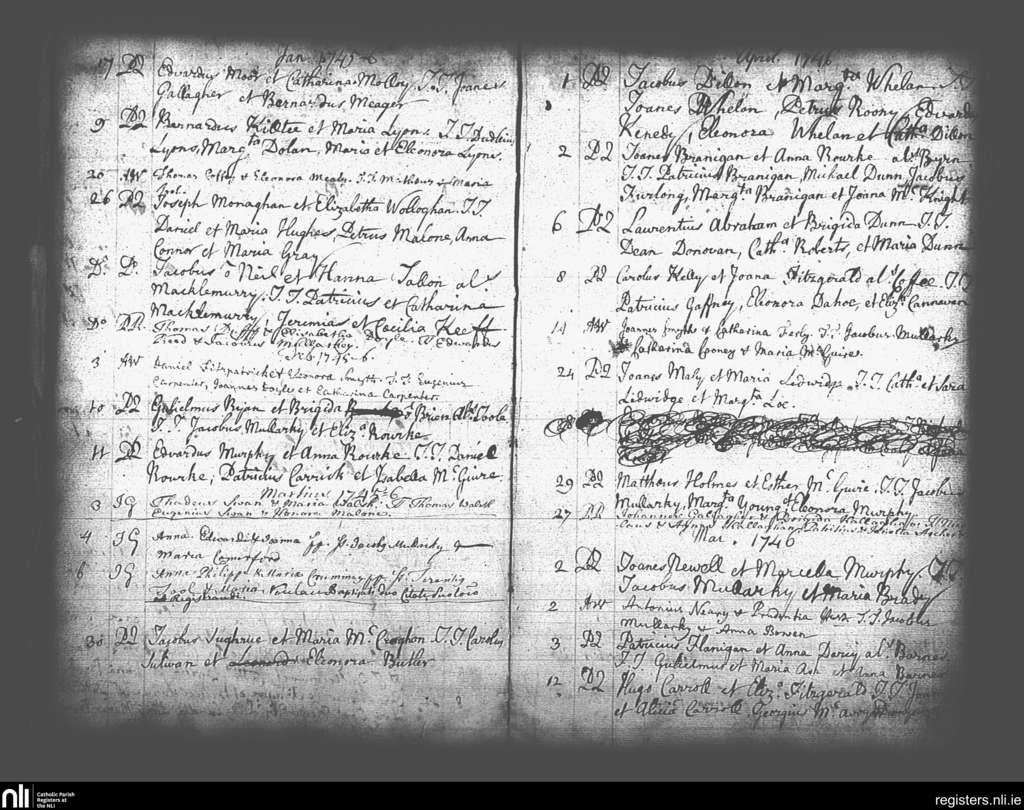 Jan 1745-6
17 DD Edvardus Moor et Catharina Molloy. T.T. Joanes
Gallagher et Bernardus Meager
9 DD Bernardus Kiltee et Maria Lyons. T.T.
Lyons, Marg.ta Dolan, Maria et Eleonora Lyons.
20 AW Thomas Coffy & Eleonora Mealy. T.T. Matheus & Maria
26 DD Joseph Monaghan et Elizabetha Wolloghan. T.T.
Daniel et Maria Hughes, Petrus Malone, Anna
Connor et Maria Gray
Do. D. Jacobus o Neil et Hanna Tallon al.s
Macklemurry. T.T. Patricius et Catharina
Macklemurry, Jeremias et Cæcilia Keeff.
Do PR. Thomas Duffy & Elisabetha Doyle. TT Edwardus
& Jacobus Mullarkey.
Feb. 1745-6.
3 AW Daniel Fitzpatrick et Elionora Smyth. T.T. Eugenius
Carpenter, Joannes Doyle et Catharina Carpenter.
10 DD Gulielmus Ryan et Brigida o Brien al.s Toole
T.T. Jacobus Mullarky et Eliz.a Rourke
11 DD Edvardus Murphy et Anna Rourke. T.T. Daniel
Rourke, Patricius Carrick et Isabella Mc Guire.
Martius 1745-6
3 JG Thadeus Swan & Maria Walsh. TT Thomas Walsh
Eugenius Swan & Honora Malone.
4 JG Anna Edwardi & Joanna pp. Jacob Mularky
Maria Comerford
6 JG Anna Philippi & Maria Cummin pp.
& Maria
30 DD Jacobus Sughrue et Maria Mc Croghon T.T. Carolus
Sulivan et Eleonora Butler
April 1746
1 DD Jacobus Dillon et Marg.ta Whelan. T.T.
Joanes Whelan, Petrus Roony, Edvard
Kenedy, Eleonora Whelan et Cath.a Dillon
2 DD Joanes Branigan et Anna Rourke al.s Byrn
T.T. Patricius Branigan, Michael Dunn, Jacobus
Furlong, Marg.ta Branigan et Joana Mc Knight
6 DD Laurentius Abraham et Brigida Dunn. T.T.
Dean Donovan, Cath.a Roberts, et Maria Dunn
8 DD Carolus Kelly et Joana Fitzgerald al.s Coffee. T.T.
Patricius Gaffney, Eleonora Dahoe, et Eliz.a Cannavan
14 AW Joannes Smyth & Catharina Farly. T.T. Jacobus Mullarky
& Catharina Cooney & Maria Mc Guire.
24 DD Joanes Maly et Maria Lidwidge. T.T. Cath.a et Sara
Lidwidge et Marg.ta Loe.
29 DD Mattheus Holmes et Esther Mc Guire. T.T. Jacobus
Mullarky, Marg.ta Young et Eleonora Murphy.
27 PR Johannes Gallagher & Brigida Gallagher
Mai. 1746
2 DD Joanes Newell et Marcella Murphy. T.T.
Jacobus Mullarky et Maria Brady
2 AW Antonius Neary & Prudentia T.T. Jacobus
Mullarky & Anna Bowen
3 DD Patricius Flanigan et Anna Darcy al.s Barnes
T.T. Gulielmus et Maria Ash et Anna Barnes
12 DD Hugo Carroll et Eliz.a Fitzgerald T.T.
et Alicia Carroll. Georgius
nli Catholic Parish
Registers at
the NLI
registers.nli.ie